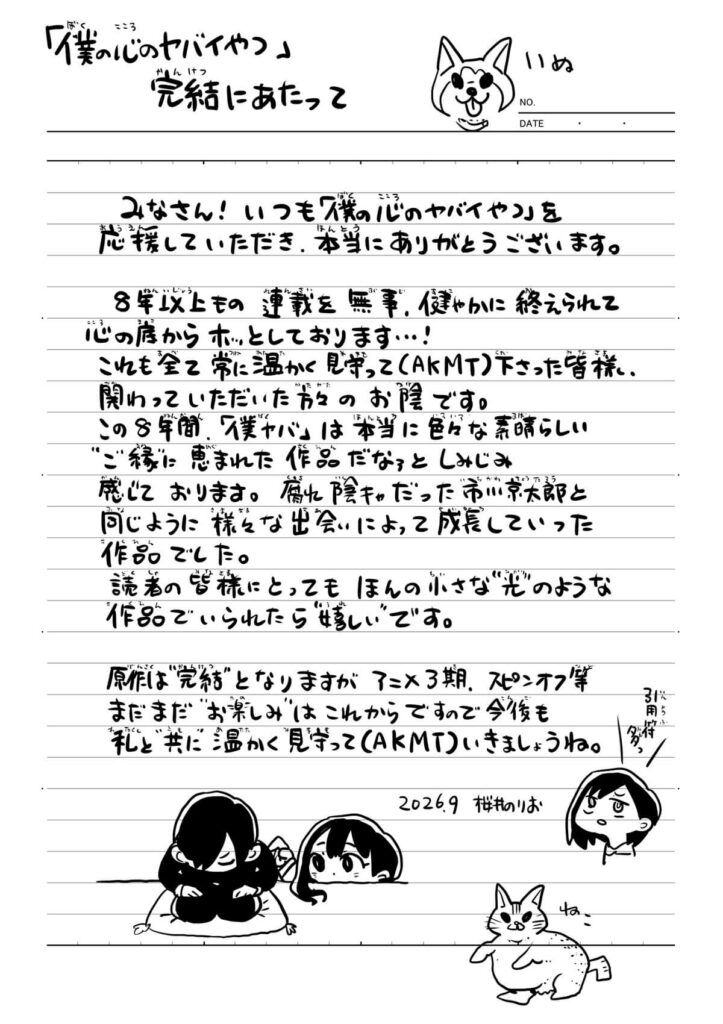 「僕の心のヤバイやつ」
完結にあたって
いぬ
NO.
DATE ・ ・
みなさん！いつも「僕の心のヤバイやつ」を
応援していただき、本当にありがとうございます。
8年以上もの連載を無事、健やかに終えられて
心の底からホッとしております…！
これも全て常に温かく見守って(AKMT)下さった皆様、
関わっていただいた方々のお陰です。
この8年間、「僕ヤバ」は本当に色々な素晴らしい
"ご縁"に恵まれた作品だなぁとしみじみ
感じております。腐れ陰キャだった市川京太郎と
同じように様々な出会いによって成長していった
作品でした。
読者の皆様にとってもほんの小さな"光"のような
作品でいられたら"嬉しい"です。
原作は"完結"となりますがアニメ3期、スピンオフ等
まだまだ"お楽しみ"はこれからですので今後も
私と"共に"温かく見守って(AKMT)いきましょうね。
引用符
多っ
2026.9 桜井のりお
ねこ